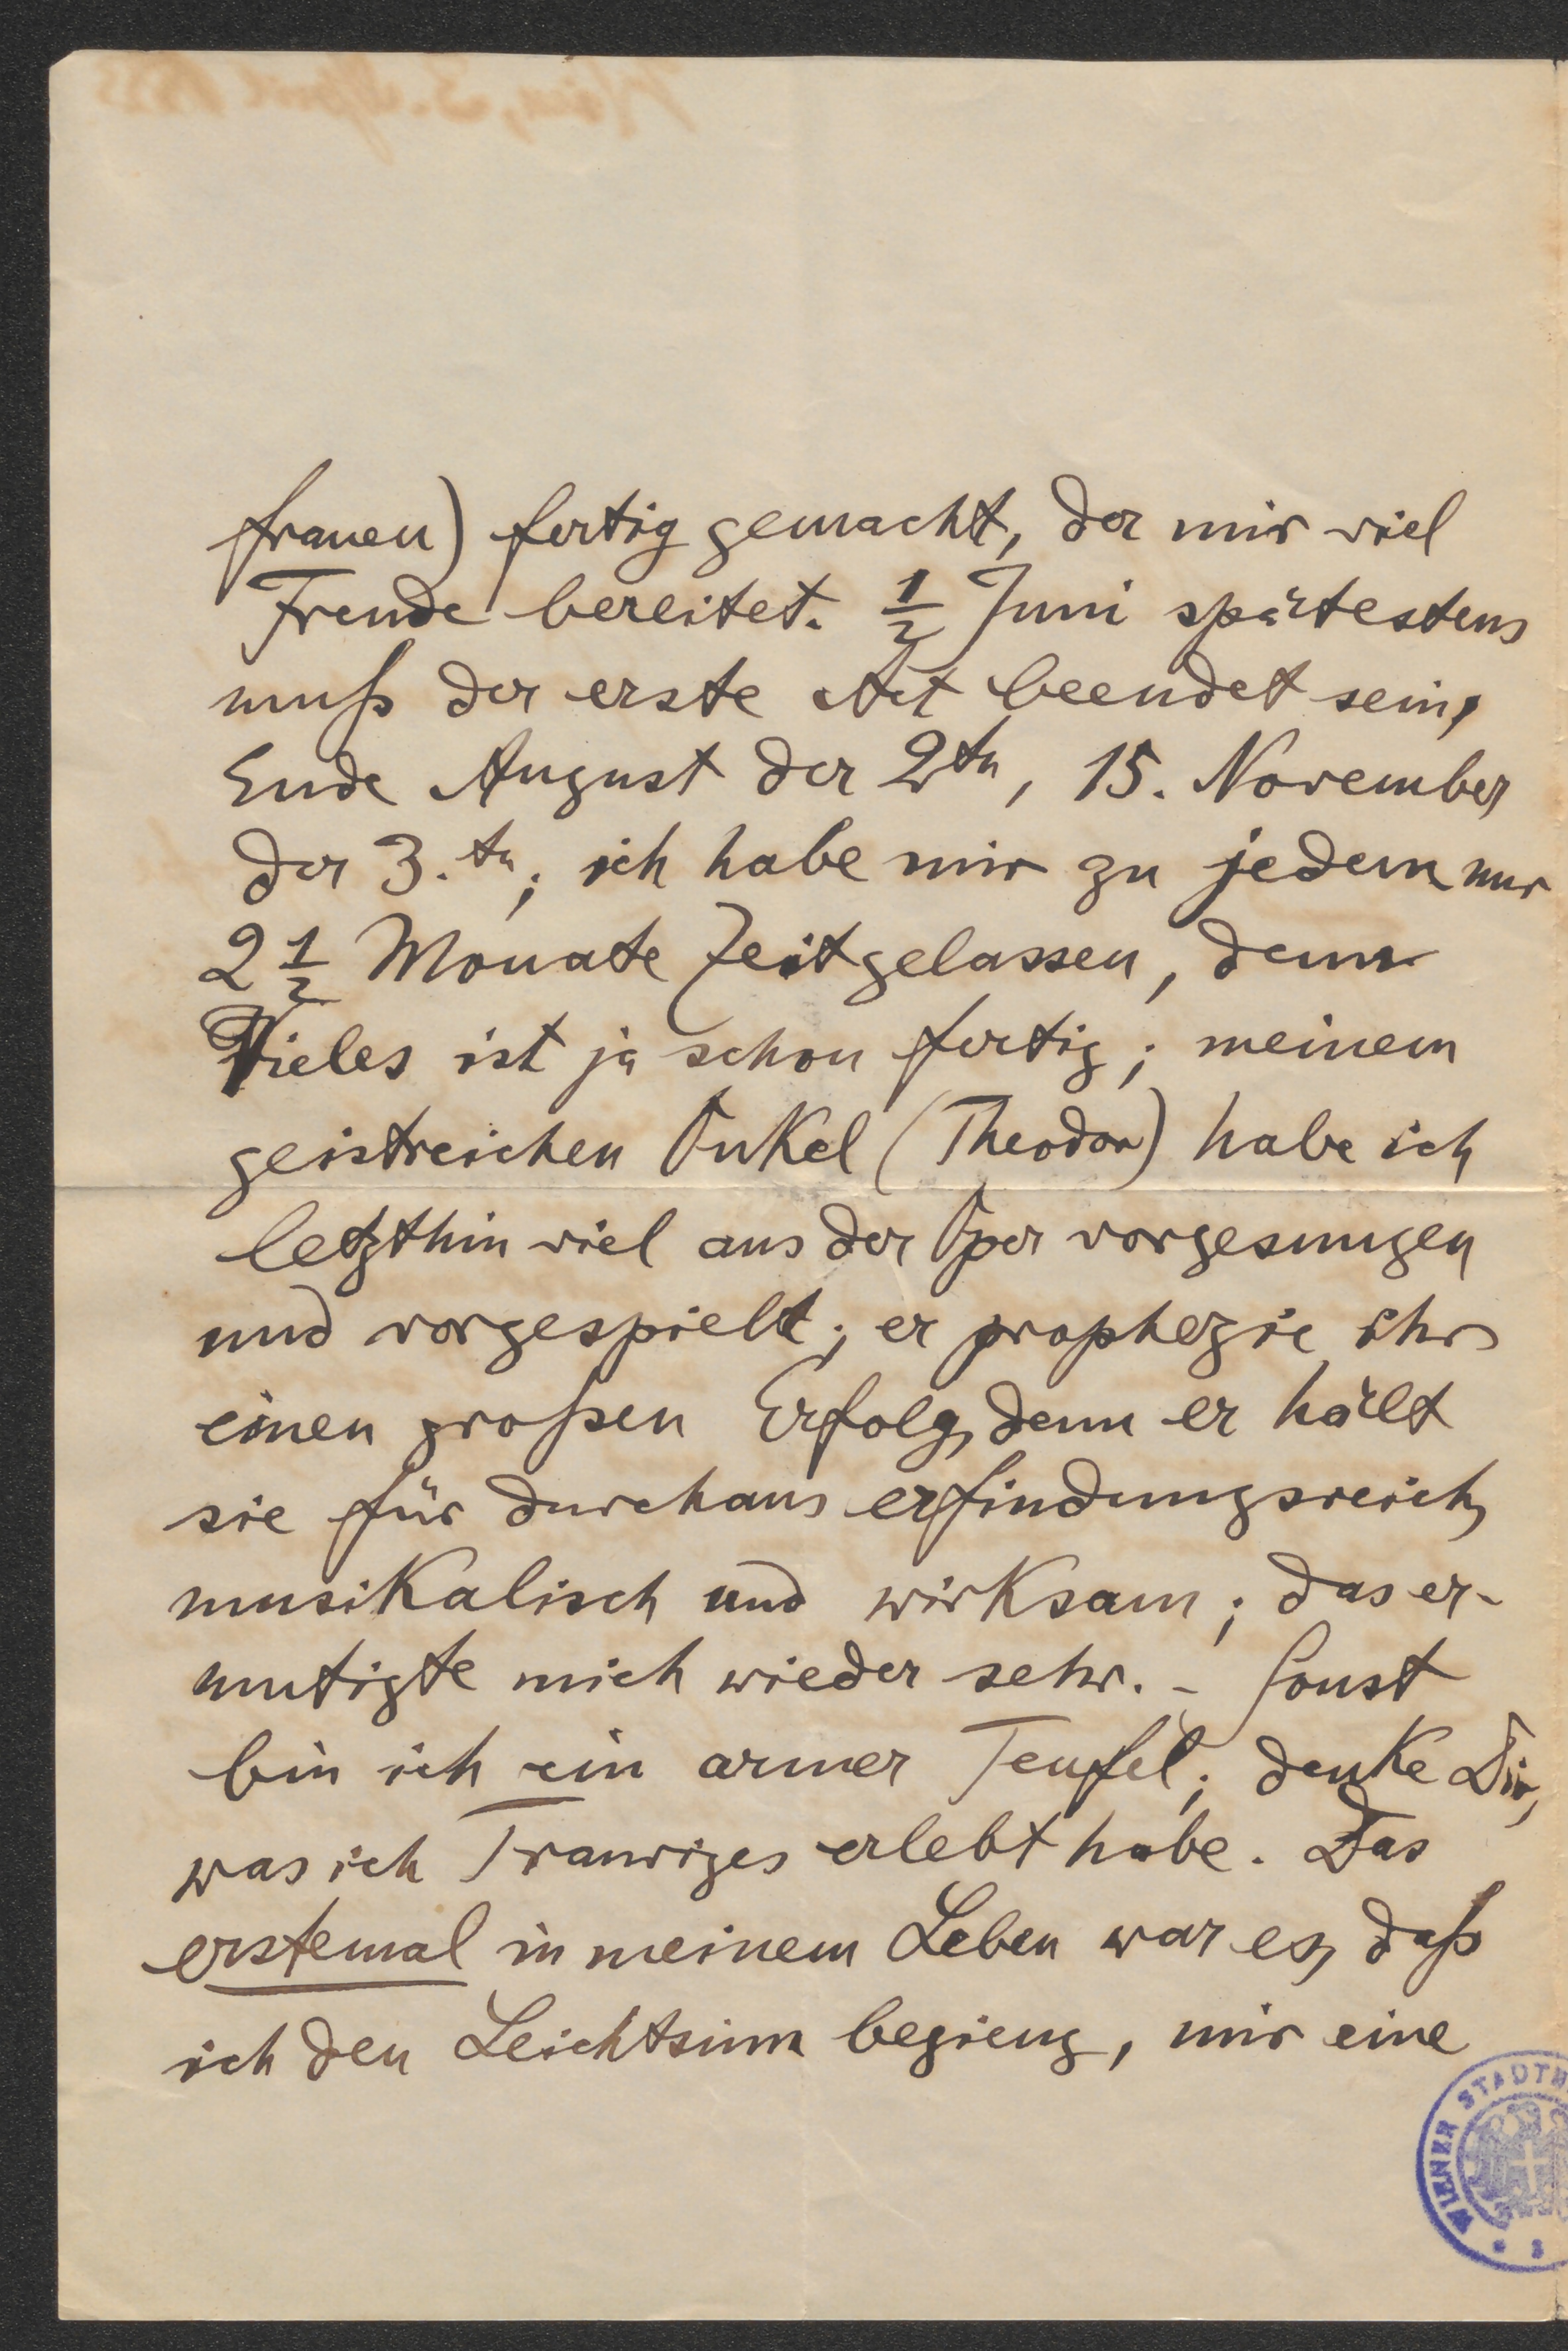 frauen) fertig gemacht, der mir viel
Freude bereitet. ½ Juni spätestens
muß der erste Act beendet sein,
Ende August der 2te, 15. November
der 3.te; ich habe mir zu jedem nur
2 ½ Monate Zeit gelassen, denn
Vieles ist ja schon fertig; meinem
geistreichen Onkel (Theodor) habe ich
letzthin viel aus der Oper vorgesungen
und vorgespielt; er prophezeie ihr
einen großen Erfolg, denn er hält
sie für durchaus erfindungsreich,
musikalisch und wirksam; das er-
mutigte mich wieder sehr. - Sonst
bin ich ein armer Teufel; denke Dir,
was ich Trauriges erlebt habe. Das
erstemal in meinem Leben war es, daß
ich den Leichtsinn begieng, mir eine
WIENER STADT